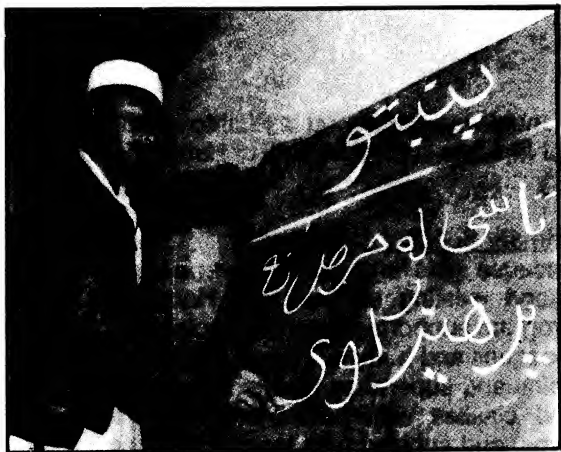 پښتو
تاسی له حرص نه
پرهیز کوی